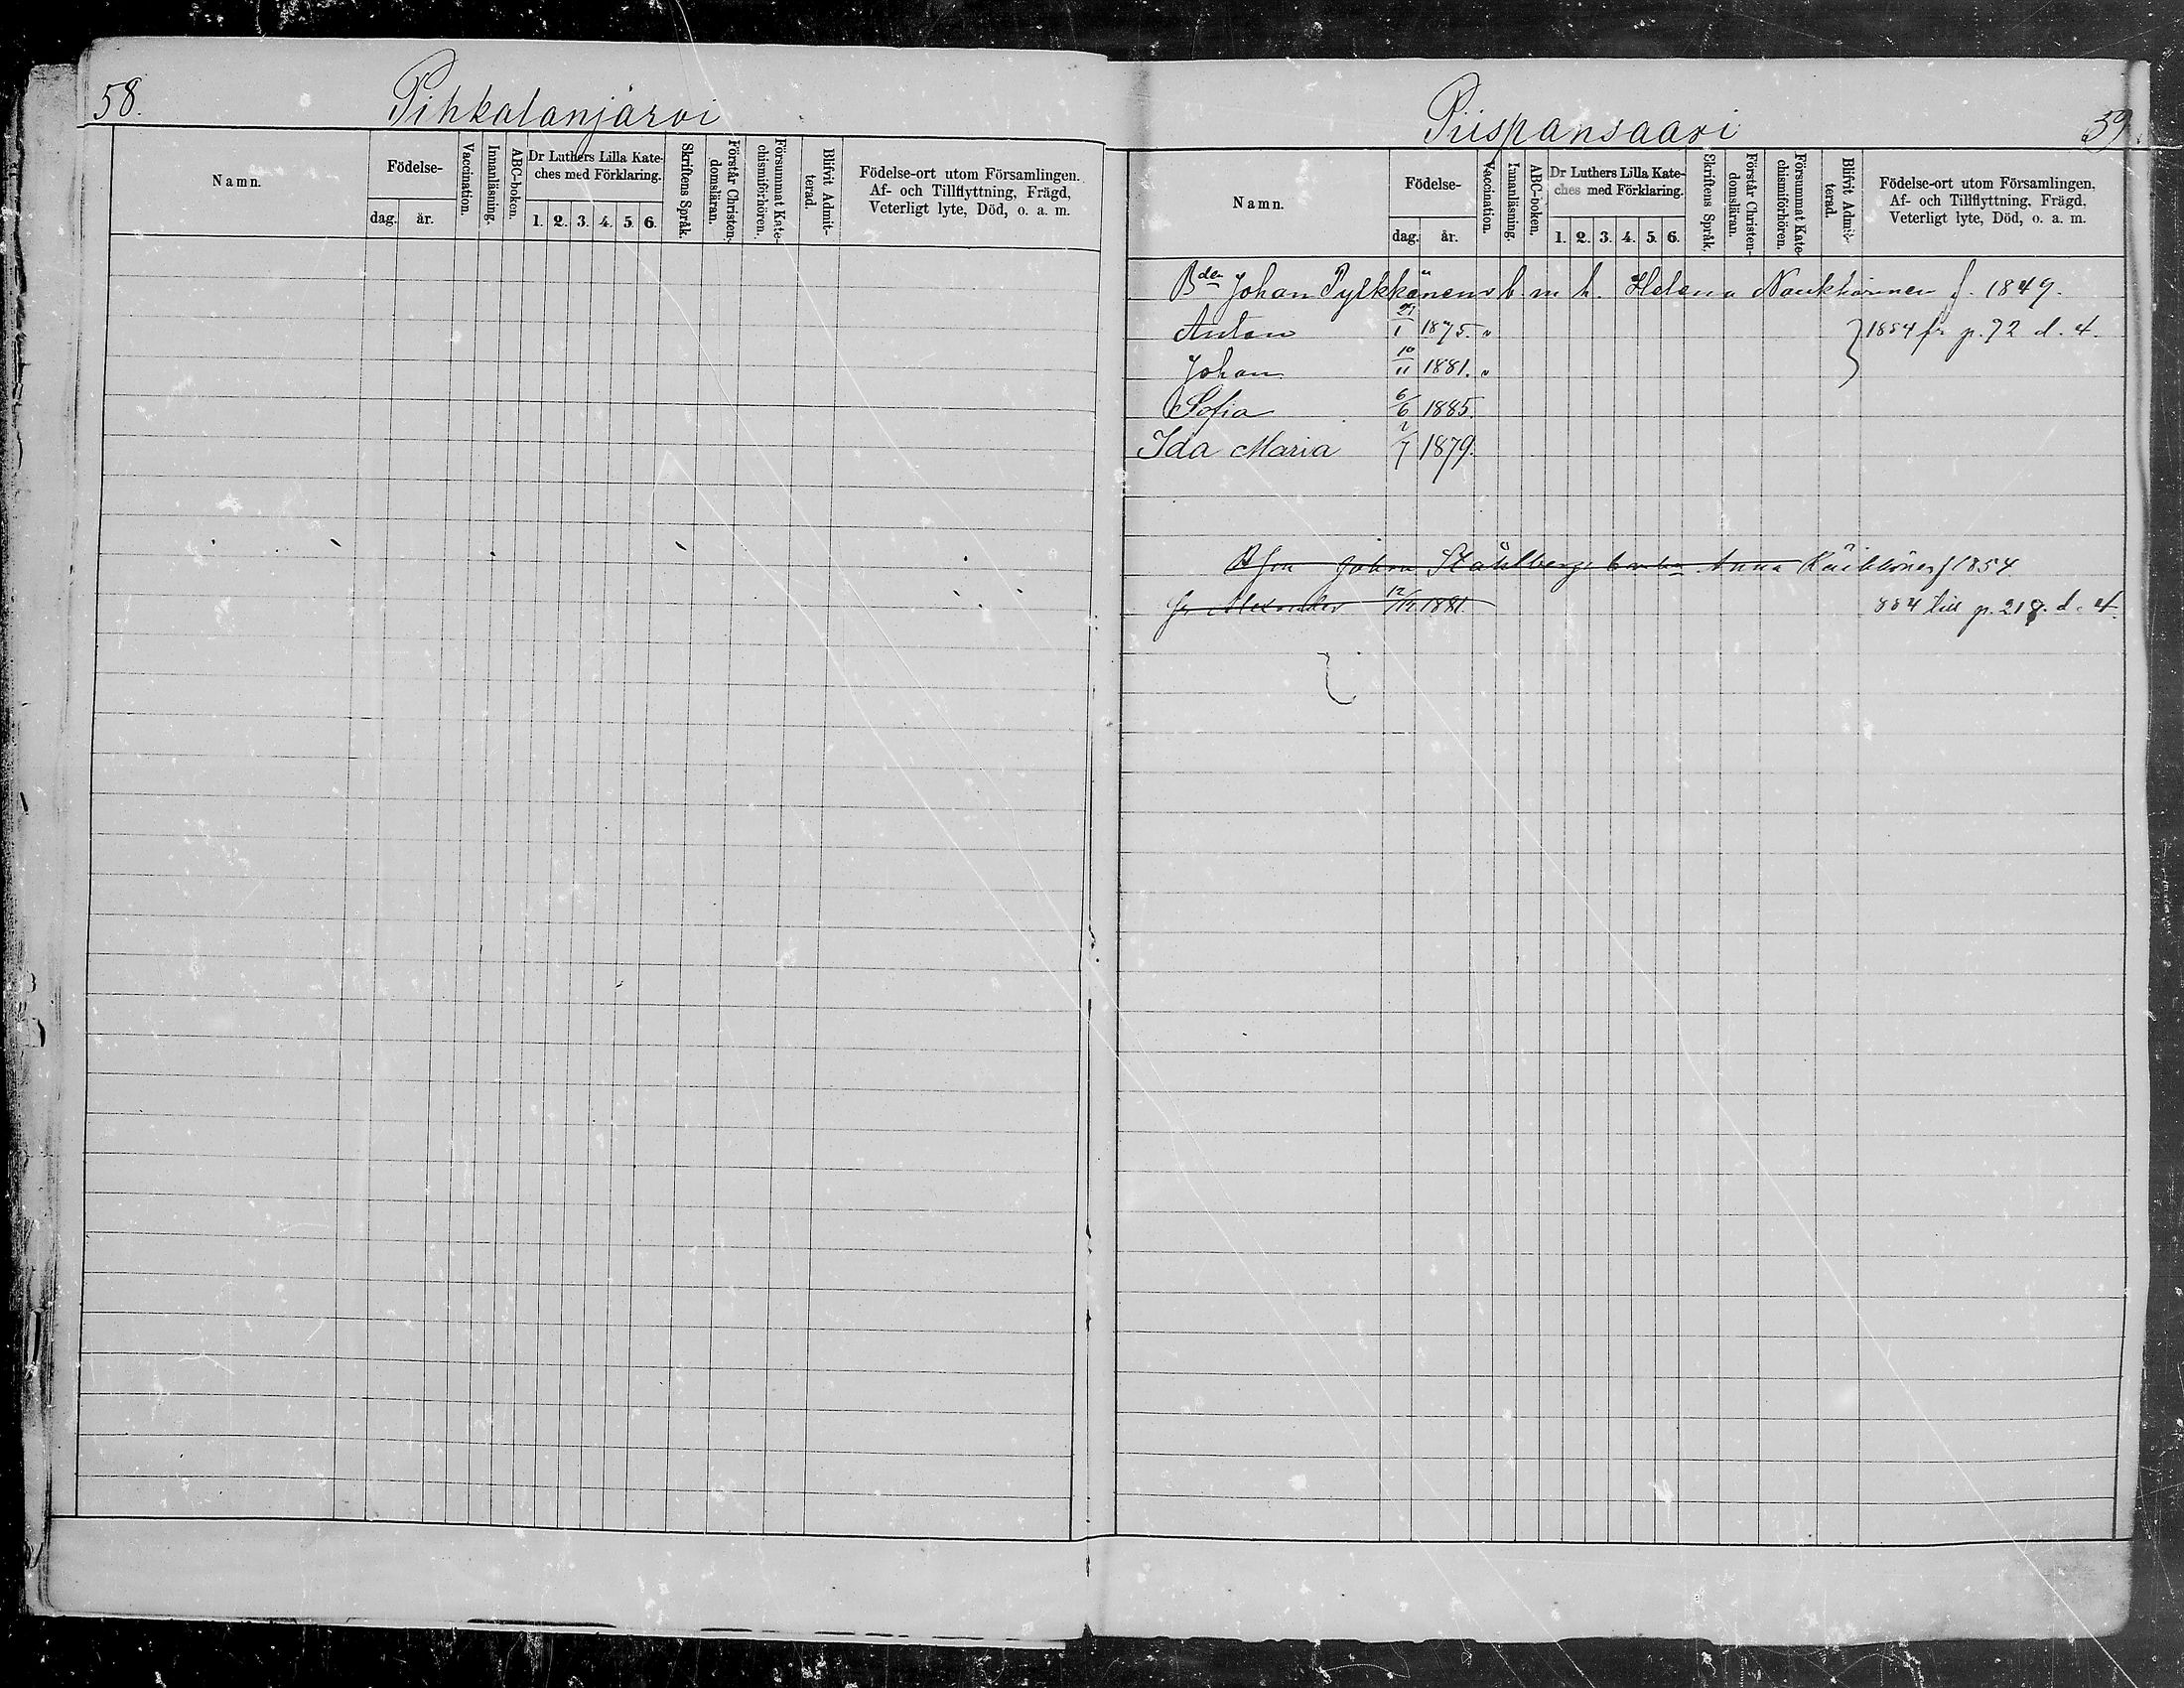 58. Pihkalanjärvi
Namn.
Födelse-
dag. år.
Vaccination.
Innanläsning.
ABC-boken.
Dr Luthers Lilla Kate-
ches med Förklaring.
1. 2. 3. 4. 5. 6.
Skriftens Språk.
Förstår Christen-
domsläran.
Försummat Kate-
chismiförhören.
Blifvit Admit-
terad.
Födelse-ort utom Församlingen.
Af- och Tillflyttning, Frägd,
Veterligt lyte, Död, o. a. m.
Piispansaari 59.
Namn.
Födelse-
dag. år.
Vaccination.
Innanläsning.
ABC-boken.
Dr Luthers Lilla Kate-
ches med Förklaring.
1. 2. 3. 4. 5. 6.
Skriftens Språk.
Förstår Christen-
domsläran.
Försummat Kate-
chismiförhören.
Blifvit Admit-
terad.
Födelse-ort utom Församlingen,
Af- och Tillflyttning, Frägd,
Veterligt lyte, Död, o. a. m.
Bden Johan Pylkkänens b. m. h. Helena f. 1849.
Anton 1875. fr p. 72 d. 4.
Johan 10/11 1881.
Sofia 6/6 1885.
Ida Maria 2/7 1879.
Johan Ståhlbergs Anna f 1854
Alexander 12/12 1881. 884 till p. 218. d. 4.